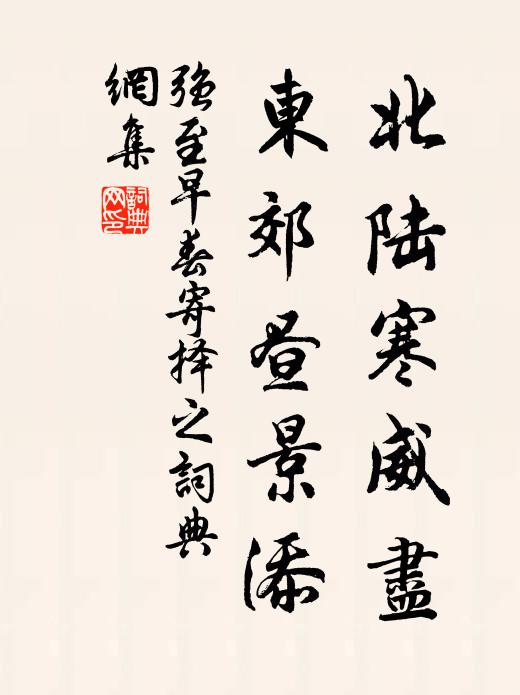 北陆寒威盡
東郊昼景添
强至早春寄择之詞典
網集
詞典
网印